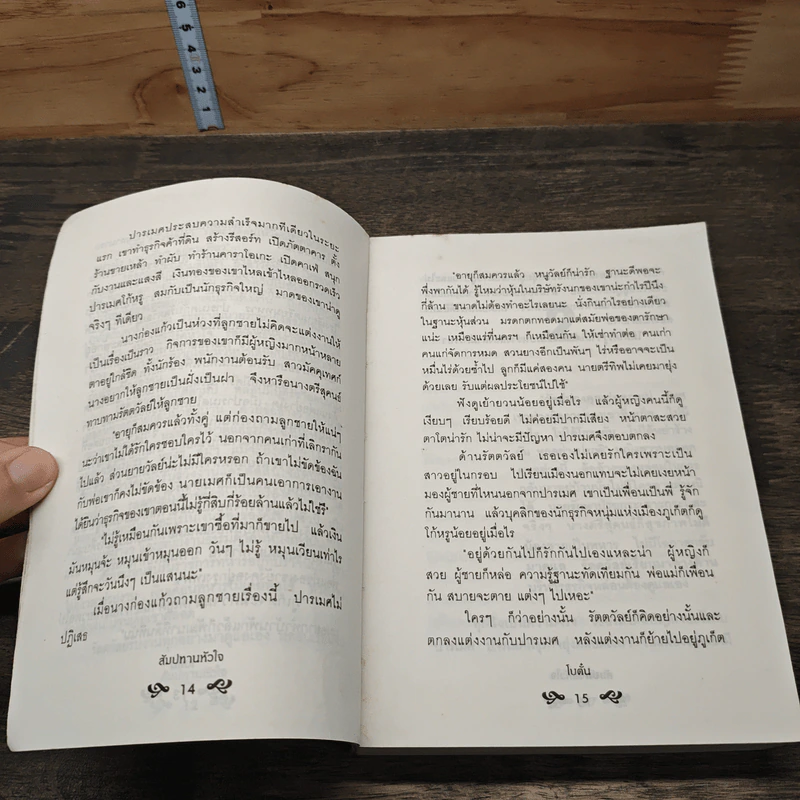 6
5
4
3
2
1
ปารเมศประสบความสำเร็จมากทีเดียวในระยะ
แรก เขาทำธุรกิจค้าที่ดิน สร้างรีสอร์ท เปิดภัตตาคาร ตั้ง
ร้านขายเหล้า ทำผับ ทำร้านคาราโอเกะ เปิดคาเฟ่ สนุก
กับงานและแสงสี เงินทองของเขาไหลเข้าไหลออกรวดเร็ว
ปารเมศโก้หรู สมกับเป็นนักธุรกิจใหญ่ มาดของเขาน่าดู
จริงๆ ทีเดียว
นางก่องแก้วเป็นห่วงที่ลูกชายไม่คิดจะแต่งงานให้
เป็นเรื่องเป็นราว กิจการของเขาก็มีผู้หญิงมากหน้าหลาย
ตาอยู่ใกล้ชิด ทั้งนักร้อง พนักงานต้อนรับ สาวมัคคุเทศก์
นางอยากให้ลูกชายเป็นฝั่งเป็นฝา จึงหารือนางตรีสุคนธ์
ทาบทามรัตตวัลย์ให้ลูกชาย
"อายุก็สมควรแล้วทั้งคู่ แต่ก่องถามลูกชายให้แน่ๆ
นะว่าเขาไม่ได้รักใครชอบใครไว้ นอกจากคนเก่าที่เลิกรากัน
ไปแล้ว ส่วนยายวัลย์น่ะไม่มีใครหรอก ถ้าเขาไม่ขัดข้องฉัน
กับพ่อเขาก็คงไม่ขัดข้อง นายเมศก็เป็นคนเอาการเอางาน
ได้ยินว่าธุรกิจของเขาตอนนี้ไม่รู้กี่สิบกี่ร้อยล้านแล้วไม่ใช่รึ"
"ไม่รู้เหมือนกันเพราะเขาซื้อที่มาก็ขายไป แล้วเงิน
มันหมุนจ้ะ หมุนเข้าหมุนออก วันๆ ไม่รู้ หมุนเวียนเท่าไร
แต่รู้สึกจะวันนึงๆ เป็นแสนนะ"
เมื่อนางก่องแก้วถามลูกชายเรื่องนี้ ปารเมศไม่
ปฏิเสธ
สัมปทานหัวใจ
14
"อายุก็สมควรแล้ว หนูวัลย์ก็น่ารัก ฐานะดีพอจะ
พึ่งพากันได้ รู้ไหมว่าหุ้นในบริษัทรังนกของเขาน่ะกำไรปีนึง
กี่ล้าน ขนาดไม่ต้องทำอะไรเลยนะ นั่งกินกำไรอย่างเดียว
ในฐานะหุ้นส่วน มรดกตกทอดมาแต่สมัยพ่อของตารักษา
แน่ะ เหมืองแร่ที่นครฯ ก็เหมือนกัน ให้เช่าทำต่อ คนเก่า
คนแก่จัดการหมด สวนยางอีกเป็นพันๆ ไร่หรืออาจจะเป็น
หมื่นไร่ด้วยซ้ำไป ลูกก็มีแค่สองคน นายตรีทิพไม่เคยมายุ่ง
ด้วยเลย รับแต่ผลประโยชน์ไปใช้"
ฟังดูเย้ายวนน้อยอยู่เมื่อไร แล้วผู้หญิงคนนี้ก็ดู
เงียบๆ เรียบร้อยดี ไม่ค่อยมีปากมีเสียง หน้าตาสะสวย
ตาโตน่ารัก ไม่น่าจะมีปัญหา ปารเมศจึงตอบตกลง
ด้านรัตตวัลย์ เธอเองไม่เคยรักใครเพราะเป็น
สาวอยู่ในกรอบ ไปเรียนเมืองนอกแทบจะไม่เคยเงยหน้า
มองผู้ชายที่ไหนนอกจากปารเมศ เขาเป็นเพื่อนเป็นพี่ รู้จัก
กันมานาน แล้วบุคลิกของนักธุรกิจหนุ่มแห่งเมืองภูเก็ตก็ดู
โก้หรูน้อยอยู่เมื่อไร
"อยู่ด้วยกันไปก็รักกันไปเองแหละน่า ผู้หญิงก็
สวย ผู้ชายก็หล่อ ความรู้ฐานะทัดเทียมกัน พ่อแม่ก็เพื่อน
กัน สบายจะตาย แต่งๆ ไปเหอะ"
ใครๆ ก็ว่าอย่างนั้น รัตตวัลย์ก็คิดอย่างนั้นและ
ตกลงแต่งงานกับปารเมศ หลังแต่งงานก็ย้ายไปอยู่ภูเก็ต
โบตั๋น
15